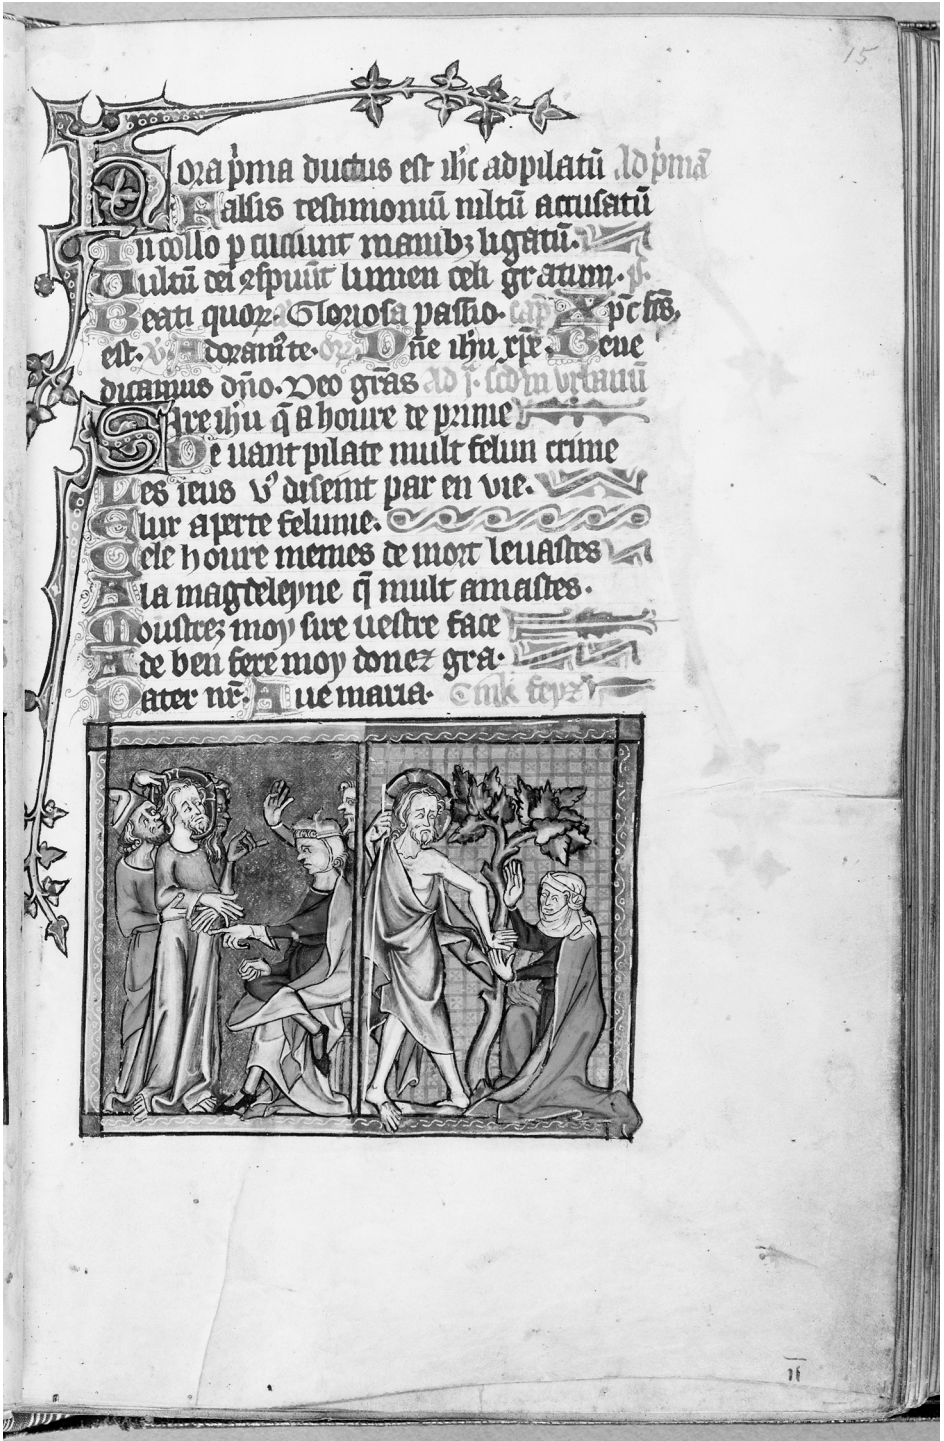 15
Hora p'ma ductus est ih'c ad pilatū Ad p'mā
Falsis testimoniū mltū accusatū
In collo p cuciunt manibꝫ ligatū.
Uultū dei ꝯspuūt lumen celi gratum. p̄.
Beati quoꝝ a Gloriosa passio. cap̄ Xp̄c
est. v̄ Adoram'te. or̄. Dn̄e ih'u xp̄e. Bene
dicamus dn̄o. Deo grās Ad j.
Sire ih'u q̄ a houre de prime
De uant pilate mult felun crime
Les ieus v' diseint par en vie.
E lur aperte felunie.
Cele houre memes de mort leuastes
A la magdeleyne q̄ mult amastes.
Moustreꝫ moy sire uestre face
A de ben fere moy donez gra.
Pater nr̄. Aue maria.